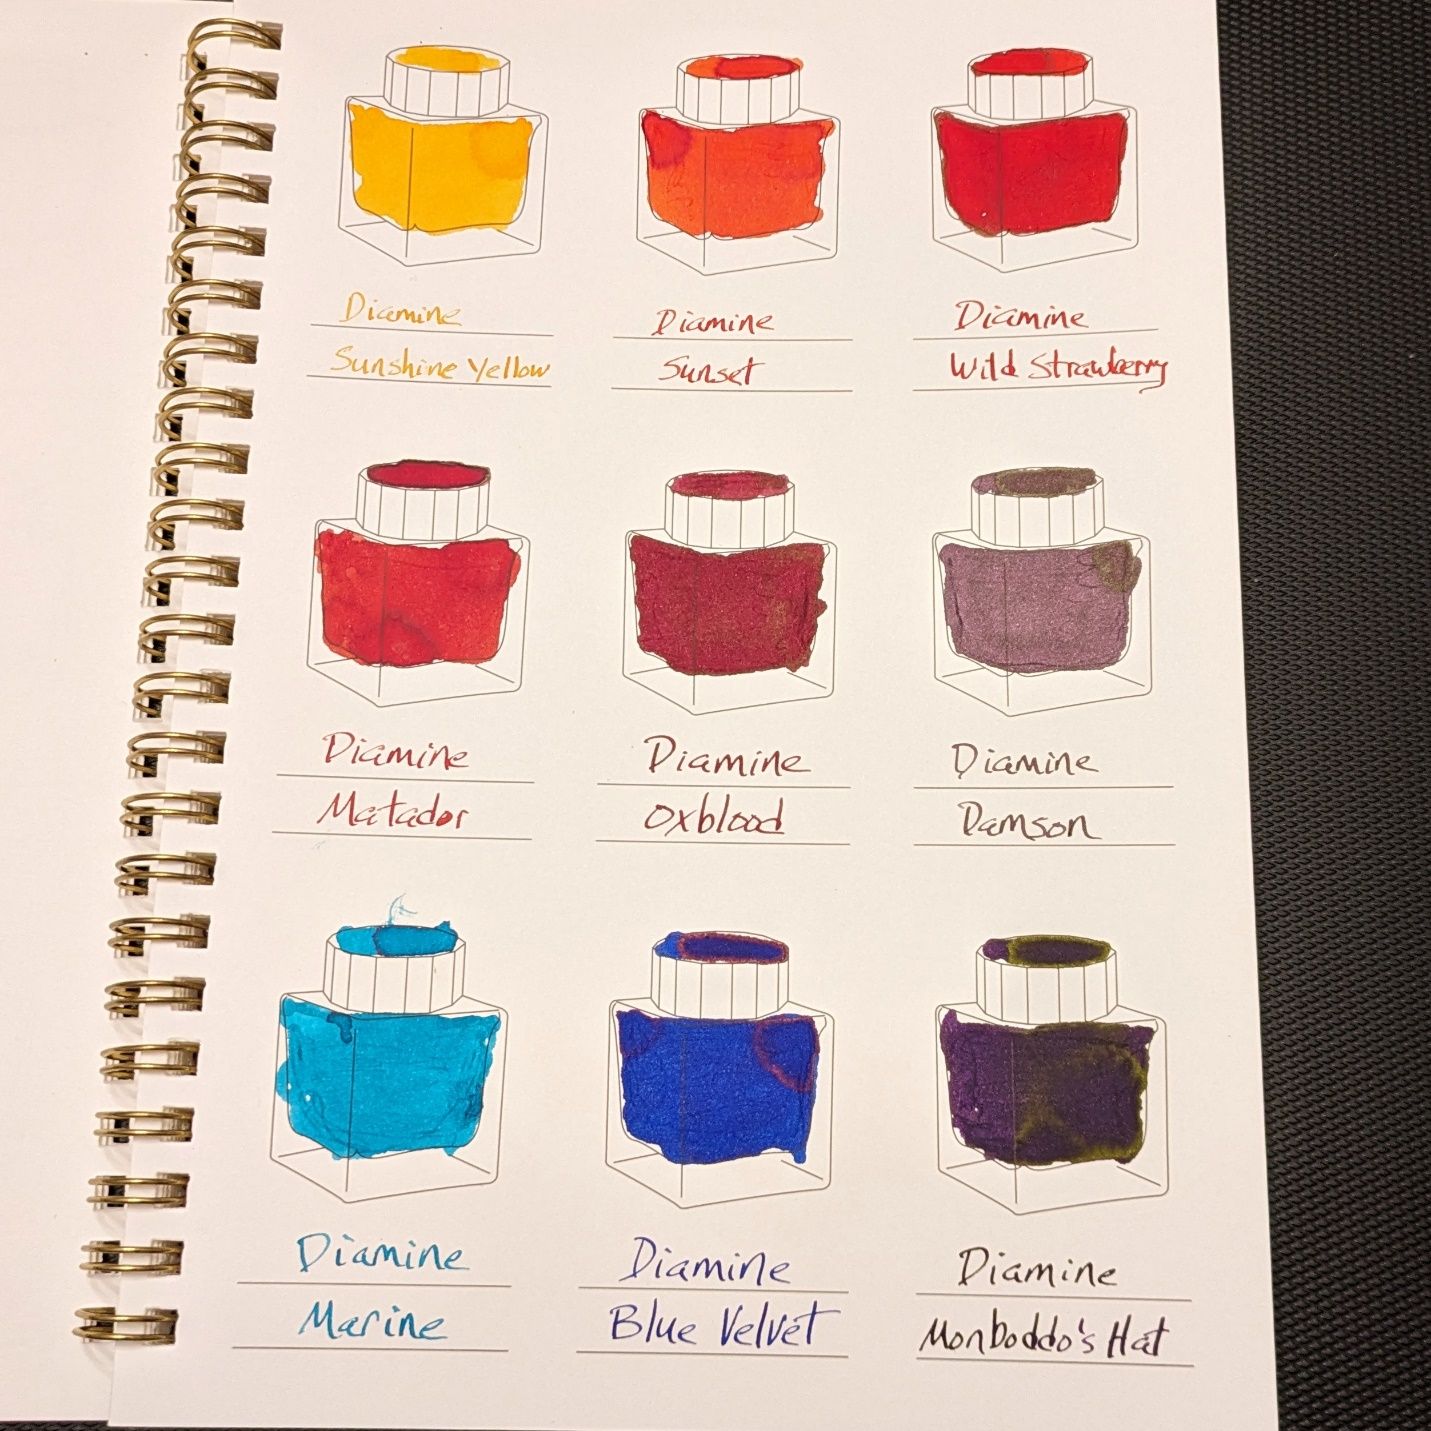 Diamine
Sunshine Yellow
Diamine
Sunset
Diamine
Wild Strawberry
Diamine
Matador
Diamine
Oxblood
Diamine
Damson
Diamine
Marine
Diamine
Blue Velvet
Diamine
Monboddo's Hat